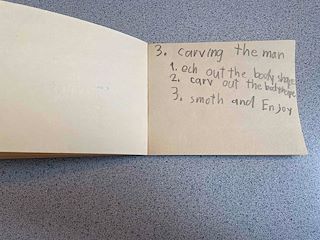 3. carving the man
1. ech out the body shape
2. carv out the bodyshape
3. smoth and Enjoy